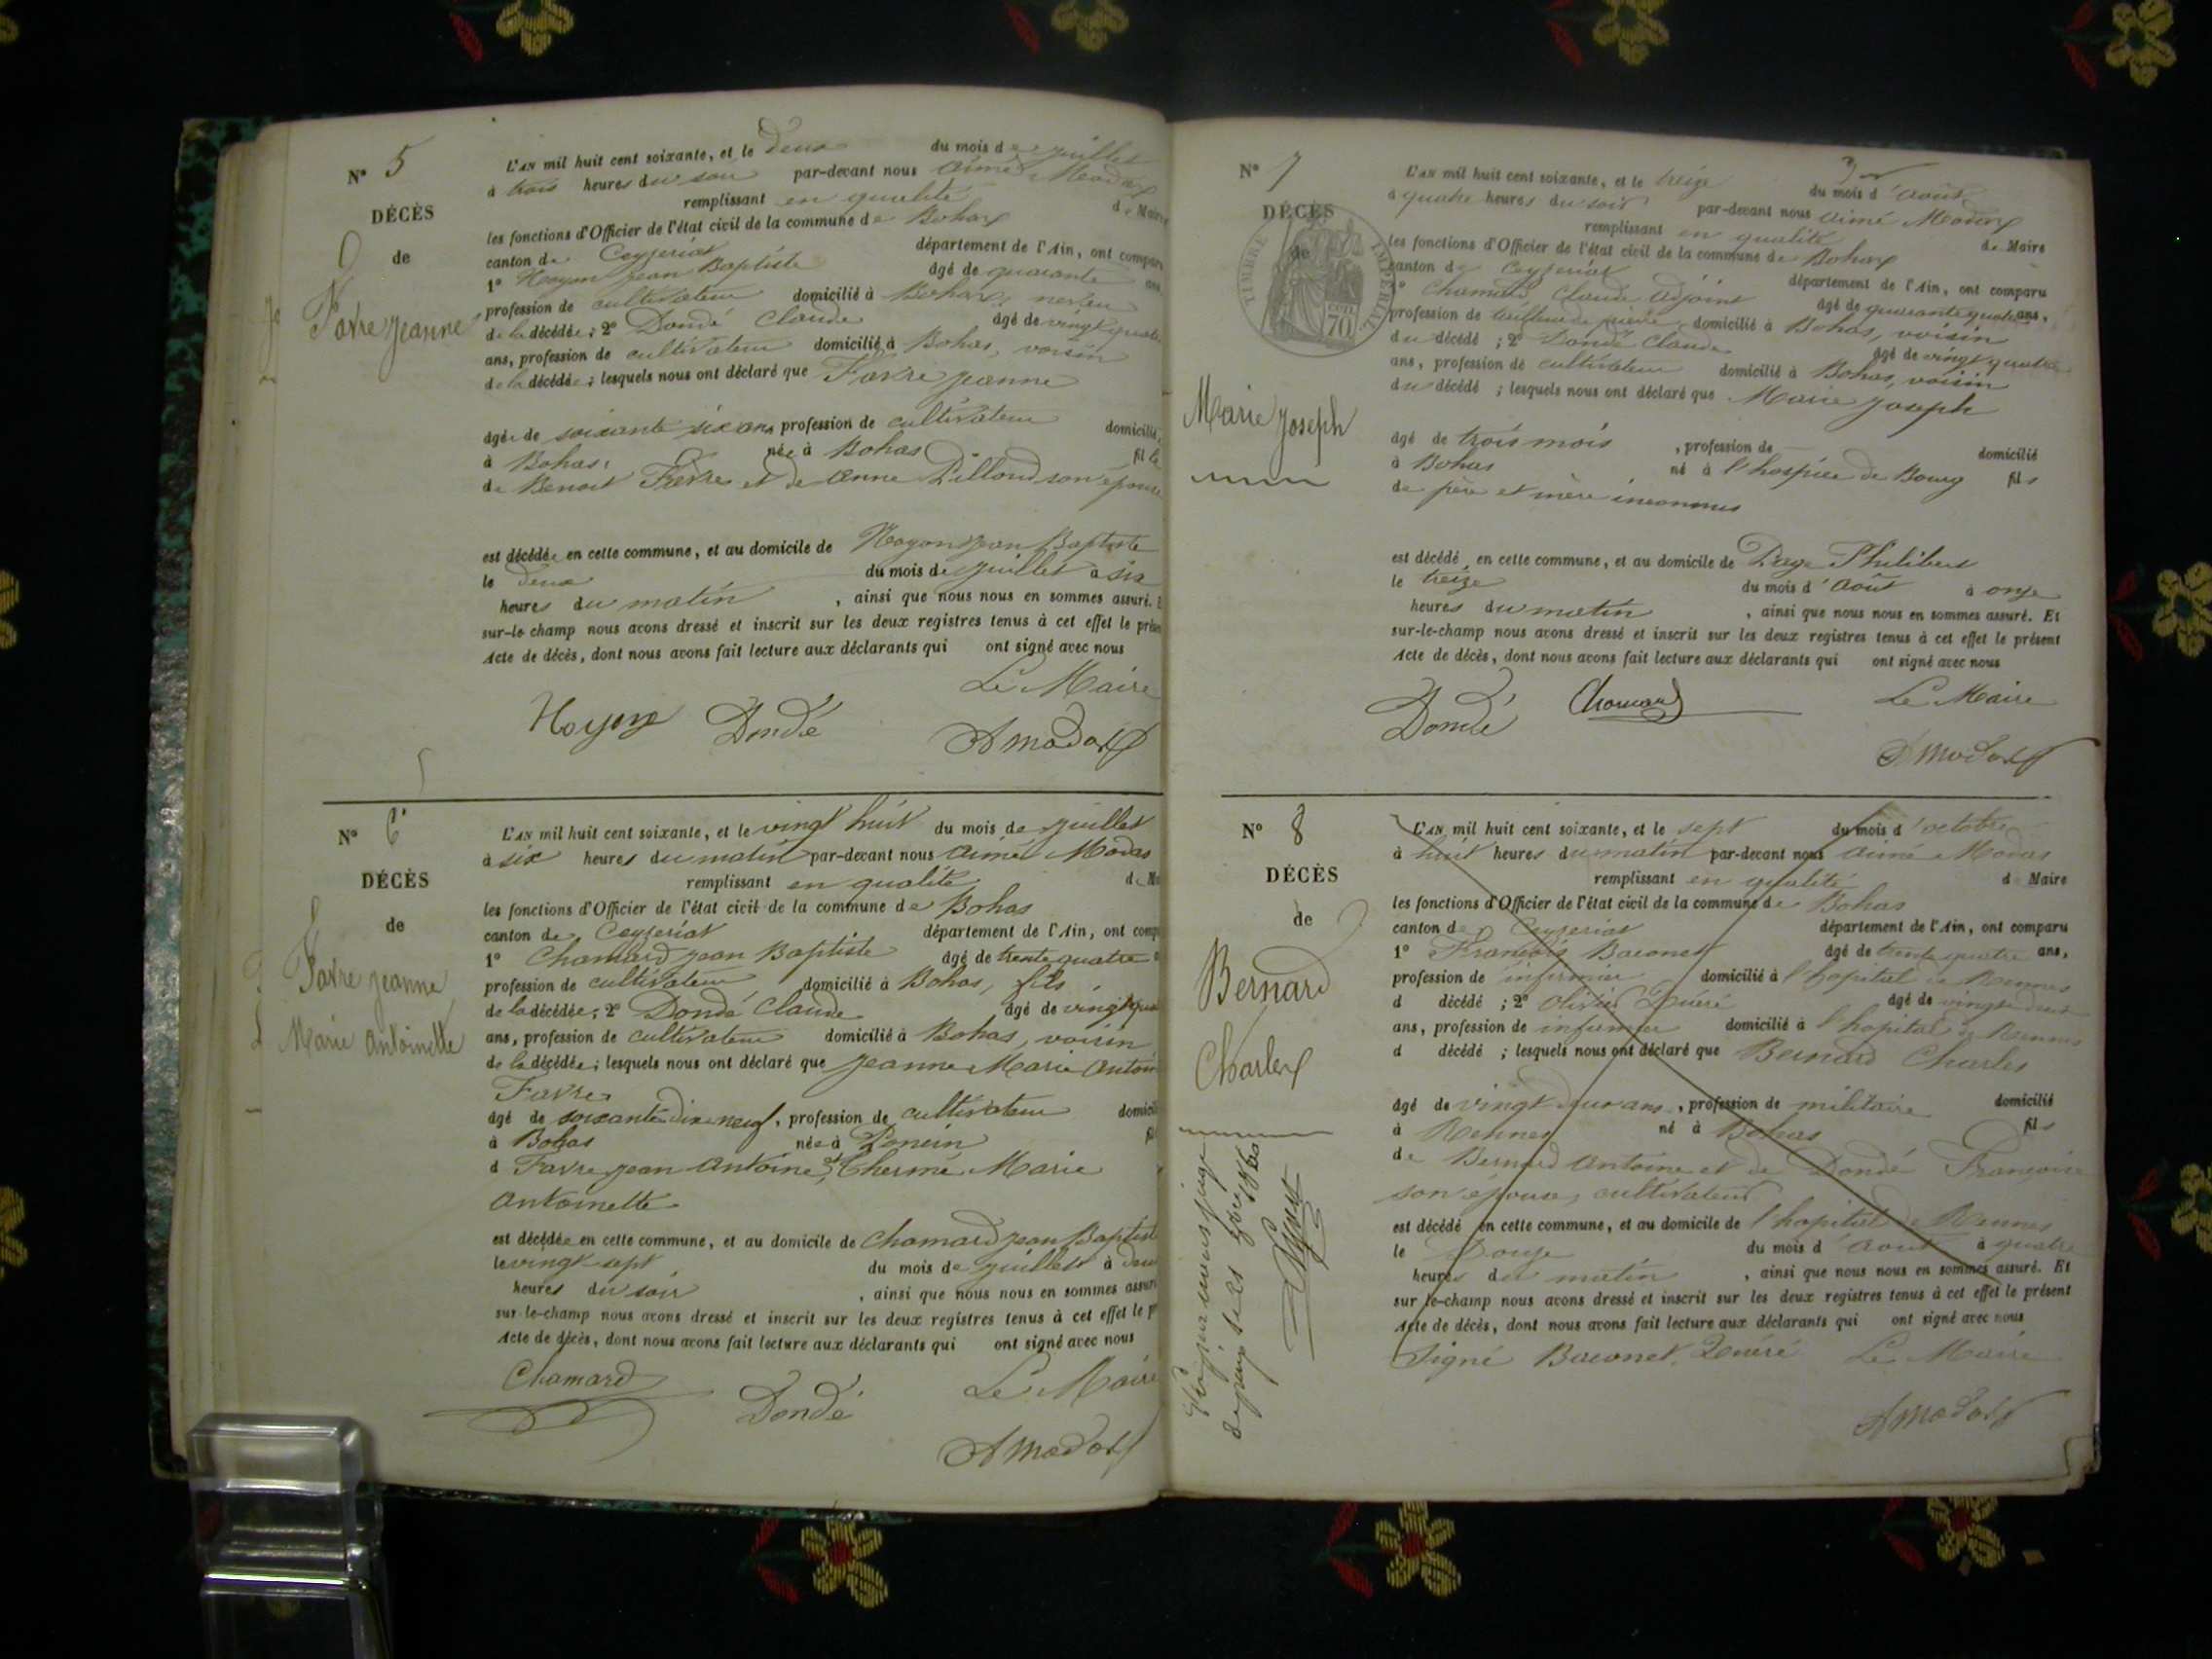 N° 5
DÉCÈS
de
Favre Jeanne
L'AN mil huit cent soixante, et le deux du mois de juillet
à trois heures du soir par-devant nous Aimé Modas
remplissant en qualité de Maire
les fonctions d'Officier de l'état civil de la commune de Bohas
canton de Ceyzeriat département de l'Ain, ont comparu
1° Noyon Jean Baptiste âgé de quarante ans
profession de cultivateur domicilié à Bohas, neveu
de la décédée; 2° Dondé Claude âgé de vingt quatre
ans, profession de cultivateur domicilié à Bohas, voisin
de la décédée; lesquels nous ont déclaré que Favre Jeanne
âgée de soixante six ans profession de cultivateur domicilié
à Bohas, née à Bohas fille
de Benoit Favre et de Anne Pilloud son épouse
est décédée en cette commune, et au domicile de Noyon Jean Baptiste
le deux du mois de juillet à six
heures du matin, ainsi que nous nous en sommes assuré. E
sur-le champ nous avons dressé et inscrit sur les deux registres tenus à cet effet le présen
Acte de décès, dont nous avons fait lecture aux déclarants qui ont signé avec nous
Le Maire
Noyon Dondé AModas
N° 6
DÉCÈS
de
Favre Jeanne
Marie Antoinette
L'AN mil huit cent soixante, et le vingt huit du mois de juillet
à six heures du matin par-devant nous Aimé Modas
remplissant en qualité de Ma
les fonctions d'Officier de l'état civil de la commune de Bohas
canton de Ceyzeriat département de l'Ain, ont comp
1° Chamard Jean Baptiste âgé de trente quatre a
profession de cultivateur domicilié à Bohas, fils
de la décédée; 2° Dondé Claude âgé de vingt qua
ans, profession de cultivateur domicilié à Bohas, voisin
de la décédée; lesquels nous ont déclaré que Jeanne Marie Antoin
Favre
âgé de soixante dix neuf, profession de cultivateur domicil
à Bohas née à fil
d Favre Jean Antoine et Thermé Marie
Antoinette
est décédée en cette commune, et au domicile de Chamard Jean Baptist
le vingt sept du mois de juillet à deux
heures du soir, ainsi que nous nous en sommes assuré
sur-le-champ nous avons dressé et inscrit sur les deux registres tenus à cet effet le p
Acte de décès, dont nous avons fait lecture aux déclarants qui ont signé avec nous
Chamard Dondé Le Maire
AModas
N° 7
DÉCÈS
de
TIMBRE IMPÉRIAL
70
Marie Joseph
L'AN mil huit cent soixante, et le treize du mois d'Août
à quatre heures du soir par-devant nous Aimé Modas
remplissant en qualité de Maire
les fonctions d'Officier de l'état civil de la commune de Bohas
canton de Ceyzeriat département de l'Ain, ont comparu
1° Chamard Claude adjoint âgé de quarante quatre ans,
profession de tailleur de pierre domicilié à Bohas, voisin
du décédé; 2° Dondé Claude âgé de vingt quatre
ans, profession de cultivateur domicilié à Bohas, voisin
du décédé; lesquels nous ont déclaré que Marie Joseph
âgé de trois mois, profession de domicilié
à Bohas né à l'hospice de Bourg fils
de père et mère inconnus
est décédé en cette commune, et au domicile de Philibert
le treize du mois d'Août à onze
heures du matin, ainsi que nous nous en sommes assuré. Et
sur-le-champ nous avons dressé et inscrit sur les deux registres tenus à cet effet le présent
Acte de décès, dont nous avons fait lecture aux déclarants qui ont signé avec nous
Dondé Chamard Le Maire
AModas
N° 8
DÉCÈS
de
Bernard
Charles
L'AN mil huit cent soixante, et le sept du mois d'octobre
à huit heures du matin par-devant nous Aimé Modas
remplissant en qualité d Maire
les fonctions d'Officier de l'état civil de la commune de Bohas
canton de Ceyzeriat département de l'Ain, ont comparu
1° François Baconet âgé de trente quatre ans,
profession de infirmier domicilié à l'hopital de Rennes
d décédé; 2° Olivier âgé de vingt deux
ans, profession de infirmier domicilié à l'hopital de Rennes
d décédé; lesquels nous ont déclaré que Bernard Charles
âgé de vingt deux ans, profession de militaire domicilié
à Rennes né à Bohas fils
de Bernard Antoine et de Dondé Françoise
son épouse, cultivateurs
est décédé en cette commune, et au domicile de l'hopital de Rennes
le douze du mois d'Août à quatre
heures du matin, ainsi que nous nous en sommes assuré. Et
sur le-champ nous avons dressé et inscrit sur les deux registres tenus à cet effet le présent
Acte de décès, dont nous avons fait lecture aux déclarants qui ont signé avec nous
Signé Baconet Le Maire
AModas